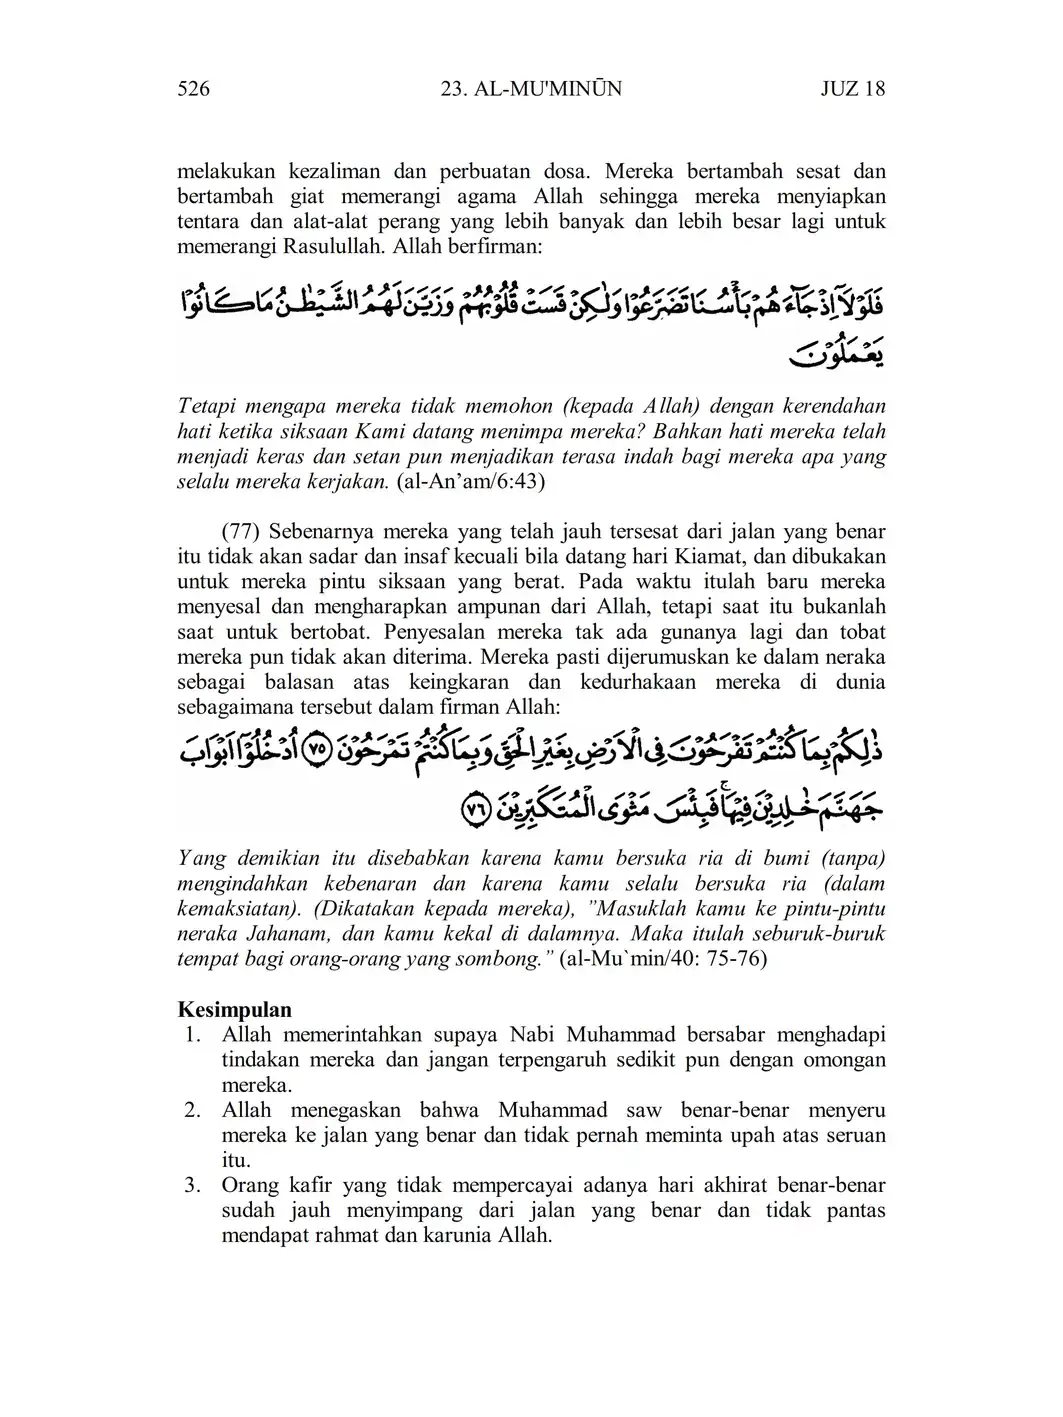 526 23. AL-MU'MINŪN JUZ 18
melakukan kezaliman dan perbuatan dosa. Mereka bertambah sesat dan
bertambah giat memerangi agama Allah sehingga mereka menyiapkan
tentara dan alat-alat perang yang lebih banyak dan lebih besar lagi untuk
memerangi Rasulullah. Allah berfirman:
فَلَوْلَآ اِذْ جَاۤءَهُمْ بَأْسُنَا تَضَرَّعُوْا وَلٰكِنْ قَسَتْ قُلُوْبُهُمْ وَزَيَّنَ لَهُمُ الشَّيْطٰنُ مَا كَانُوْا
يَعْمَلُوْنَ
Tetapi mengapa mereka tidak memohon (kepada Allah) dengan kerendahan
hati ketika siksaan Kami datang menimpa mereka? Bahkan hati mereka telah
menjadi keras dan setan pun menjadikan terasa indah bagi mereka apa yang
selalu mereka kerjakan. (al-An’am/6:43)
(77) Sebenarnya mereka yang telah jauh tersesat dari jalan yang benar
itu tidak akan sadar dan insaf kecuali bila datang hari Kiamat, dan dibukakan
untuk mereka pintu siksaan yang berat. Pada waktu itulah baru mereka
menyesal dan mengharapkan ampunan dari Allah, tetapi saat itu bukanlah
saat untuk bertobat. Penyesalan mereka tak ada gunanya lagi dan tobat
mereka pun tidak akan diterima. Mereka pasti dijerumuskan ke dalam neraka
sebagai balasan atas keingkaran dan kedurhakaan mereka di dunia
sebagaimana tersebut dalam firman Allah:
ذٰلِكُمْ بِمَا كُنْتُمْ تَفْرَحُوْنَ فِى الْاَرْضِ بِغَيْرِ الْحَقِّ وَبِمَا كُنْتُمْ تَمْرَحُوْنَ ٧٥ اُدْخُلُوْٓا اَبْوَابَ
جَهَنَّمَ خٰلِدِيْنَ فِيْهَاۚ فَبِئْسَ مَثْوَى الْمُتَكَبِّرِيْنَ ٧٦
Yang demikian itu disebabkan karena kamu bersuka ria di bumi (tanpa)
mengindahkan kebenaran dan karena kamu selalu bersuka ria (dalam
kemaksiatan). (Dikatakan kepada mereka), ”Masuklah kamu ke pintu-pintu
neraka Jahanam, dan kamu kekal di dalamnya. Maka itulah seburuk-buruk
tempat bagi orang-orang yang sombong.” (al-Mu`min/40: 75-76)
Kesimpulan
1. Allah memerintahkan supaya Nabi Muhammad bersabar menghadapi
tindakan mereka dan jangan terpengaruh sedikit pun dengan omongan
mereka.
2. Allah menegaskan bahwa Muhammad saw benar-benar menyeru
mereka ke jalan yang benar dan tidak pernah meminta upah atas seruan
itu.
3. Orang kafir yang tidak mempercayai adanya hari akhirat benar-benar
sudah jauh menyimpang dari jalan yang benar dan tidak pantas
mendapat rahmat dan karunia Allah.